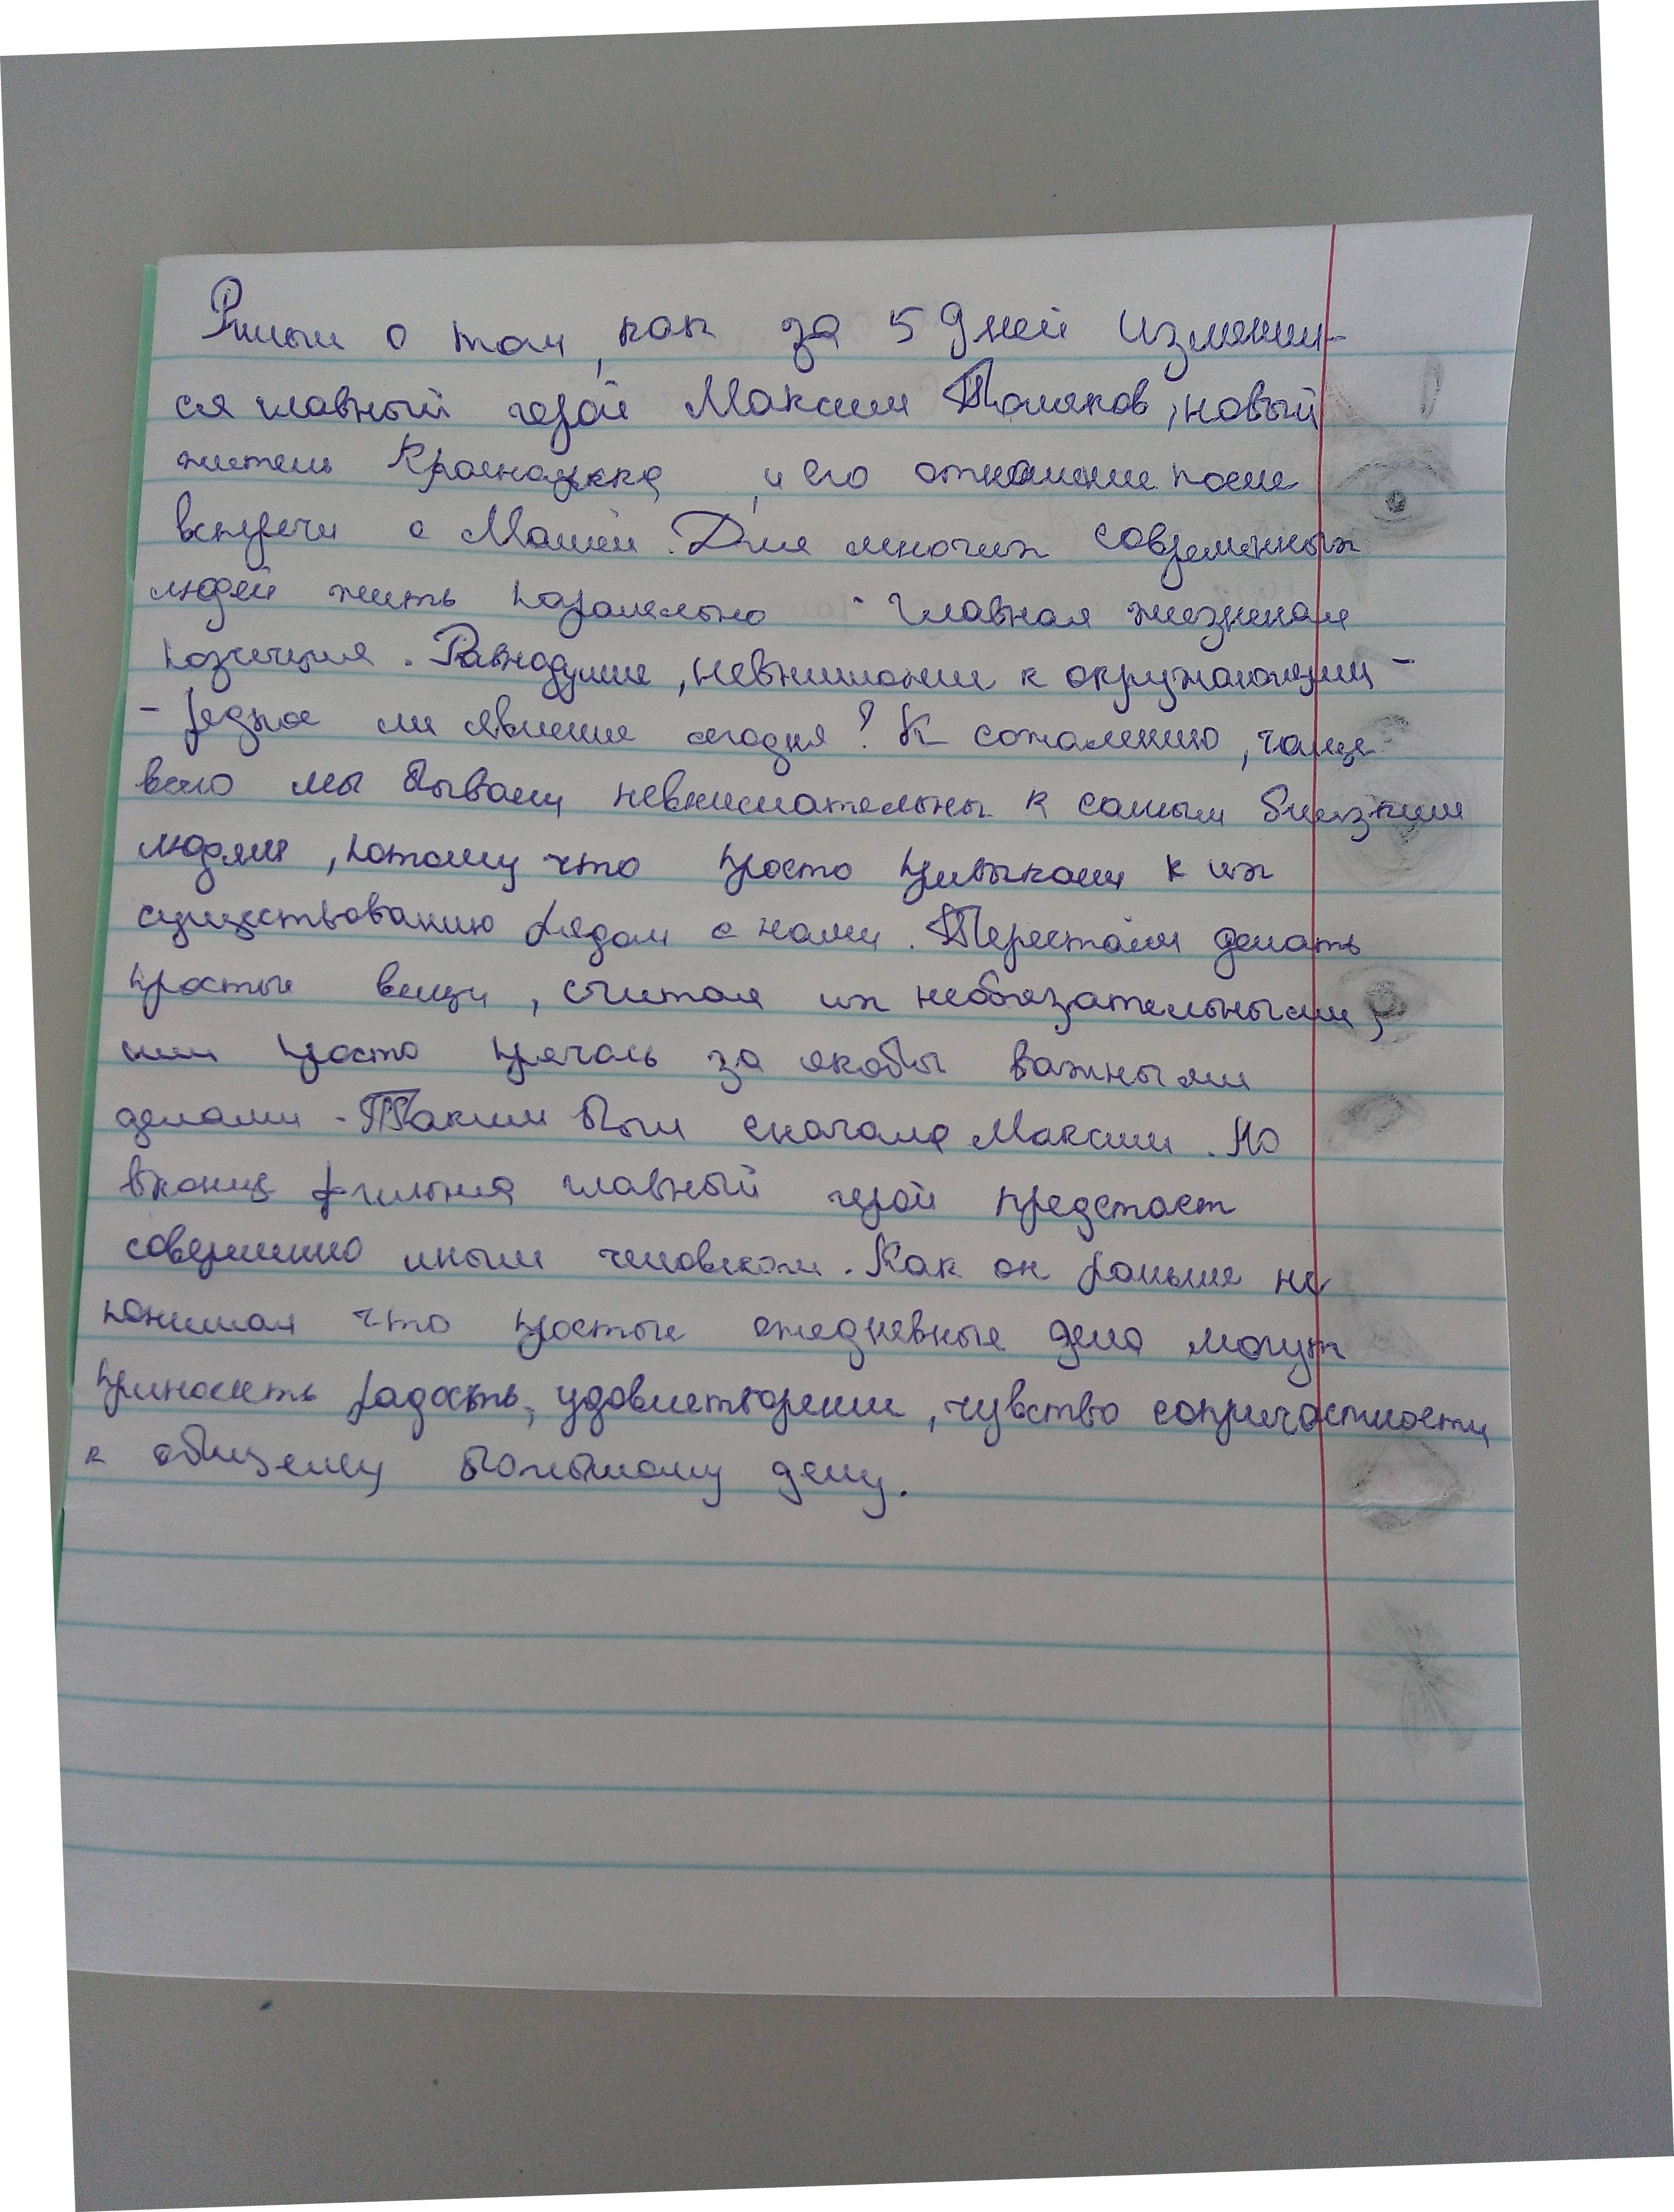 Фильм о том, как за 5 дней изменил-
ся главный герой Максим Поляков, новый
житель Красноярска, и его отношение после
встречи с Машей. Для многих современных
людей жить паралельно - главная жизненная
позиция. Равнодушие, невнимание к окружающим -
- редкое ли явление сегодня? К сожалению, чаще
всего мы бываем невнимательны к самым близким
людям, потому что просто привыкаем к их
существованию рядом с нами. Перестаём делать
простые вещи, считая их необязательными,
или просто прячась за якобы важными
делами. Таким был сначала Максим. Но
вконце фильма главный герой предстает
совершенно иным человеком. Как он раньше не
понимал что простые ежедневные дела могут
приносить радость, удовлетворение, чувство сопричастности
к общему большому делу.